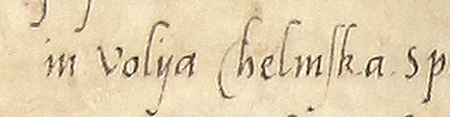 in Volya Chelmſka. Sp